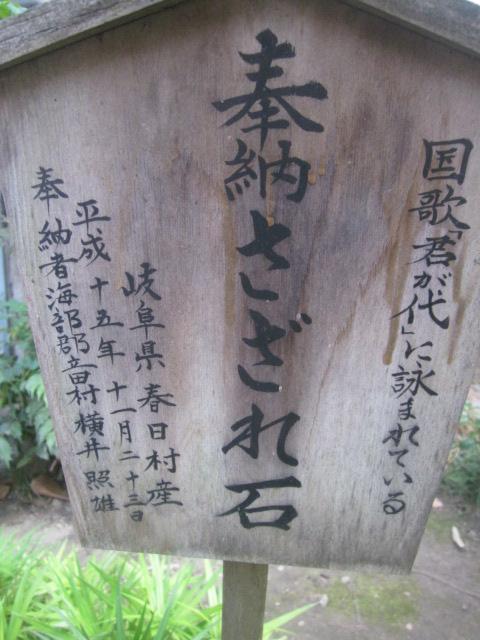 国歌「君が代」に詠まれている
奉納さざれ石
岐阜県春日村産
平成十五年十一月二十三日
奉納者海部郡 村横井照雄